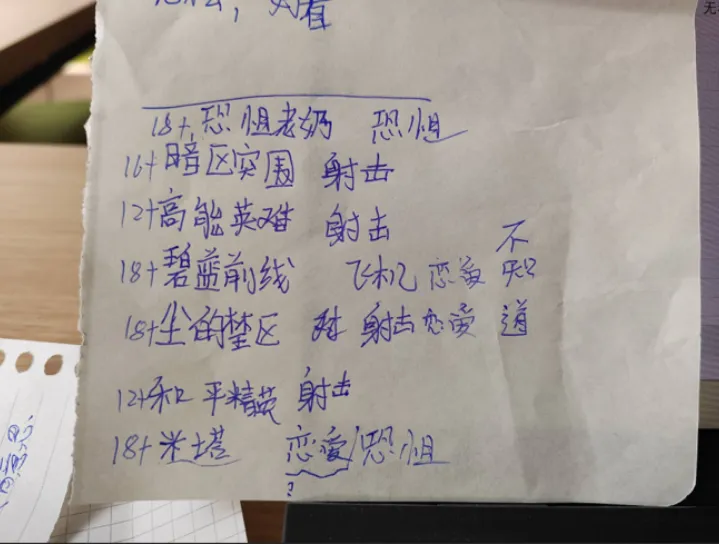 18+恐怚老奶 恐怚
16+暗区突围 射击
12+高能英难 射击
18+碧蓝前线 飞机 恋爱 不知道
18+尘的禁区 射击 恋爱
12+和平精英 射击
18+米塔 恋爱/恐怚
?
无